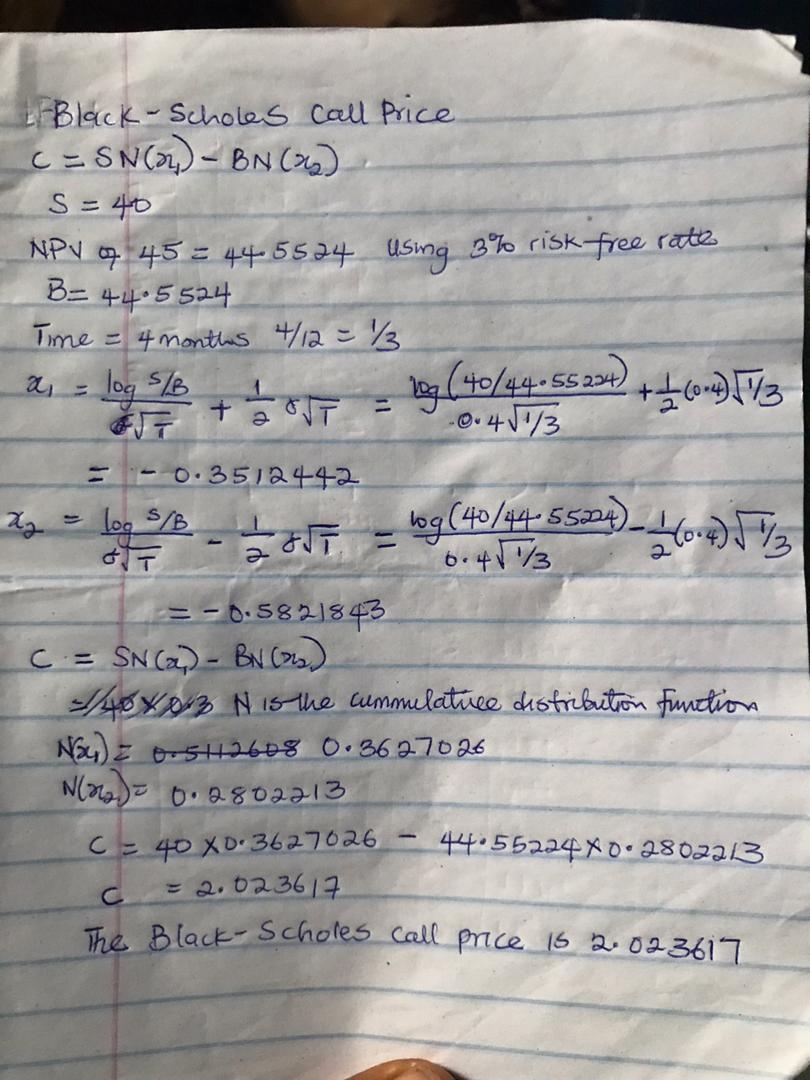 Black-Scholes Call Price
C = SN(x₁) - BN(x₂)
S = 40
NPV of 45 = 44.5524 Using 3% risk-free rate
B = 44.5524
Time = 4 months 4/12 = 1/3
x₁ = log S/B / σ√T + 1/2 σ√T = log(40/44.55224) / 0.4√1/3 + 1/2 (0.4)√1/3
= - 0.3512442
x₂ = log S/B / σ√T - 1/2 σ√T = log(40/44.55224) / 0.4√1/3 - 1/2 (0.4)√1/3
= -0.5821843
C = SN(x₁) - BN(x₂)
N is the cummulative distribution function
N(x₁) = 0.5112608 0.3627026
N(x₂) = 0.2802213
C = 40 X 0.3627026 - 44.55224 X 0.2802213
C = 2.023617
The Black-Scholes call price is 2.023617